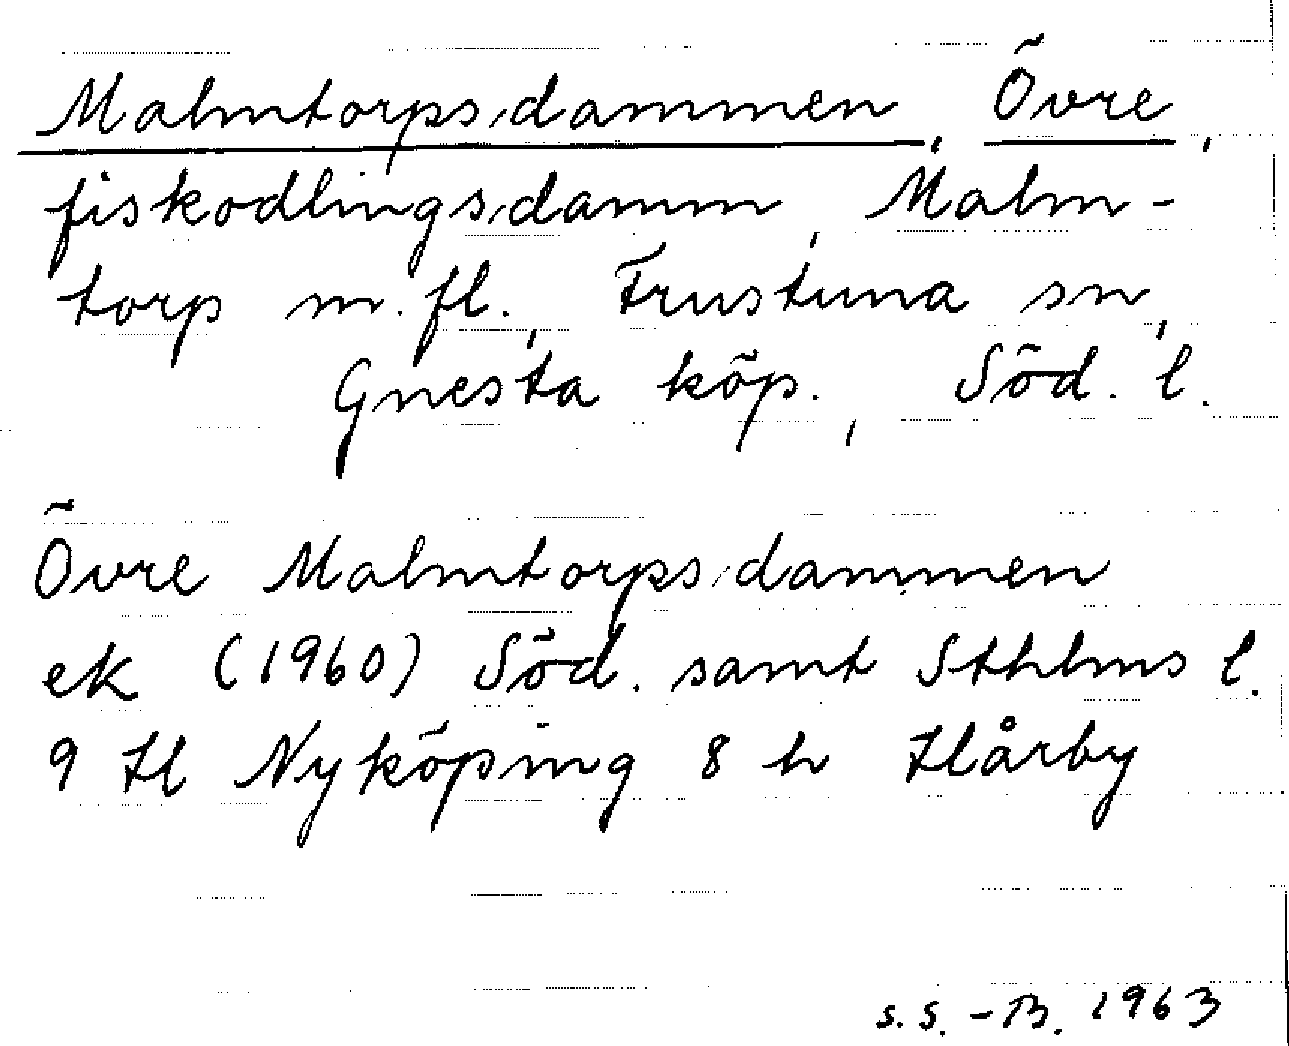 Malmtorpsdammen, Övre,
fiskodlingsdamm, Malm-
torp m.fl., Frustuna sn,
Gnesta köp., Söd. l.
Övre Malmtorpsdammen
ek (1960) Söd. samt Sthlms l.
9 H Nyköping 8 h Hårby
s.s.-B. 1963